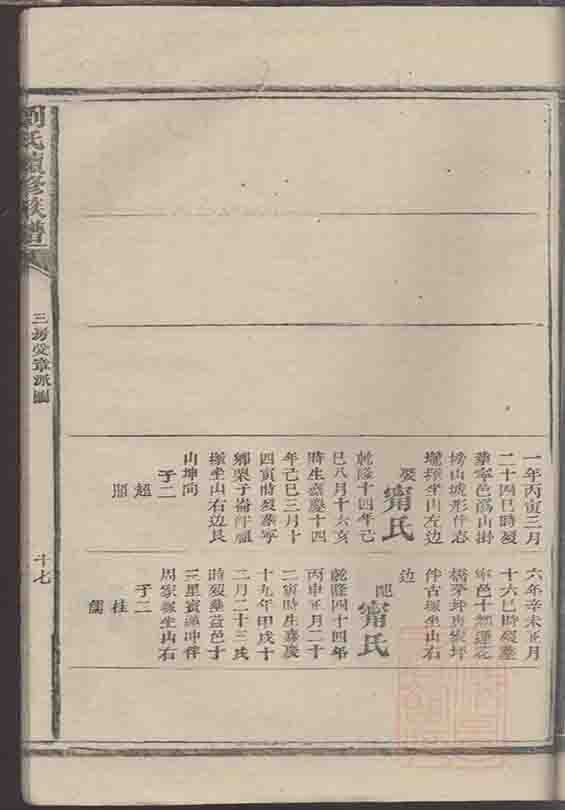 劉氏續修族譜
三房受章派圖
十七
一年丙寅三月
二十四巳時歿
葬寧邑萵山掛
榜山虎形什右
壠塚坐山左边
娶
甯氏
乾隆十四年己
巳八月十六亥
時生嘉慶十四
年己巳三月十
四寅時歿葬寧
鄉栗子崙
塚坐山右边艮
山坤向
子二
超
六年辛未正月
十六巳時歿葬
寧邑十都蓮花
橋茅坪
伴古塚坐山右
边
配
甯氏
乾隆四十四年
丙申正月二十
二寅時生嘉慶
十九年甲戌十
二月二十三戌
時歿葬益邑十
三里賓
周家塚坐山右
子二
桂
儒